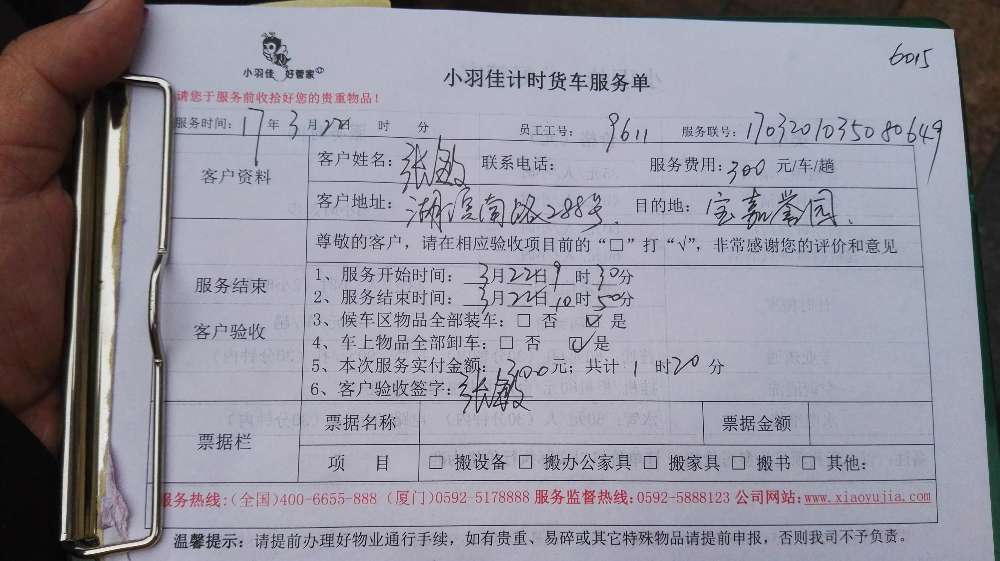 6015
小羽佳 好管家
小羽佳计时货车服务单
请您于服务前收拾好您的贵重物品！
服务时间：17年3月22日 时 分 员工工号：9611 服务联号：1703201035080649
客户资料
客户姓名：张敏 联系电话： 服务费用：300 元/车/趟
客户地址：湖滨南路288号. 目的地：宝嘉誉园.
尊敬的客户，请在相应验收项目前的“□”打“√”，非常感谢您的评价和意见
服务结束
客户验收
1、服务开始时间：3月22日9时30分
2、服务结束时间：3月22日10时50分
3、候车区物品全部装车：□ 否 ☑ 是
4、车上物品全部卸车：□ 否 ☑ 是
5、本次服务实付金额：300元；共计1时20分
6、客户验收签字：张敏
票据栏
票据名称 票据金额
项 目 □ 搬设备 □ 搬办公家具 □ 搬家具 □ 搬书 □ 其他：
服务热线：(全国)400-6655-888 (厦门)0592-5178888 服务监督热线：0592-5888123 公司网站：www.xiaoyujia.com
温馨提示：请提前办理好物业通行手续，如有贵重、易碎或其它特殊物品请提前申报，否则我司不予负责。